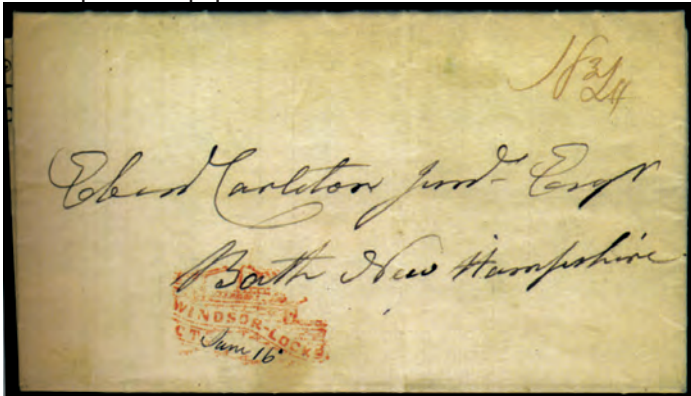 18 3/4
Eben Carleton Junr. Esqr
Bath New Hampshire
WINDSOR-LOCKS.
CT.
June 16